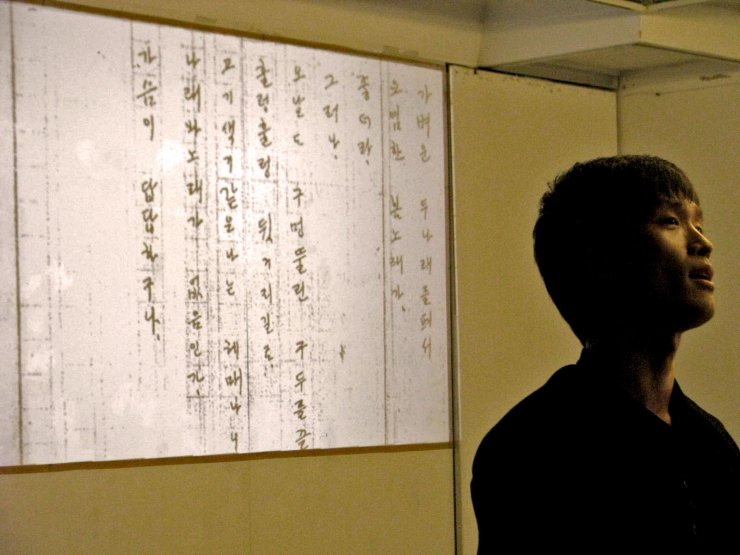 가벼운 두나래를펴서
요염한 봄노래가
좋더라,
그러나,
오날도 구멍뚤린 구두를끌
훌렁훌렁 뒷거리길로,
고기색기같은나는 헤매나니
나래와노래가 없음인가,
가슴이 답답하구나.